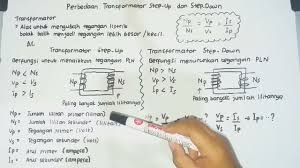 Perbedaan Transformator Step-Up dan Step-Down
Transformator
• Alat untuk mengubah tegangan listrik
bolak balik menjadi tegangan lebih besar / kecil.
Np / Ns = Vp / Vs = Is / Ip
Transformator Step-Up
Berfungsi untuk menaikkan tegangan PLN
Np < Ns
Vp < Vs
Ip > Is
Np
Ns
Paling banyak jumlah lilitannya
Transformator Step-Down
Berfungsi menurunkan tegangan PLN
Np > Ns
Vp > Vs
Ip < Is
Np
Ns
Paling banyak jumlah lilitannya
Np = Jumlah lilitan primer (lilitan)
Ns = Jumlah lilitan sekunder (lilitan)
Vp = Tegangan primer (volt)
Vs = Tegangan sekunder (volt)
Ip = Arus primer (ampere)
Is = Arus sekunder (ampere)